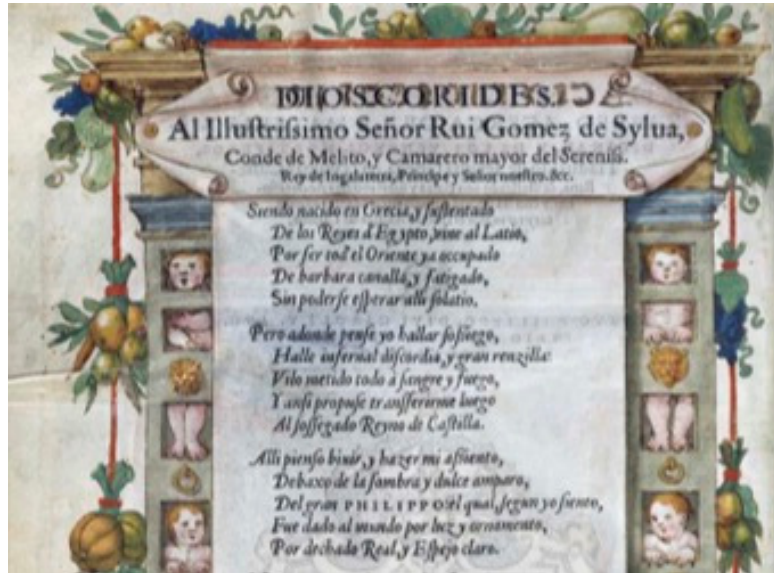 DIOSCORIDES.
Al Illustrissimo Señor Rui Gomez de Sylua,
Conde de Melito, y Camarero mayor del Sereniss.
Rey de Ingalaterra, Principe y Señor nuestro. &c.
Siendo nacido en Grecia, y sustentado
De los Reyes d'Egypto, vine al Latio,
Por ser tod'el Oriente ya occupado
De barbara canalla, y fatigado,
Sin poderse esperar alli solatio.
Pero adonde pense yo hallar sossiego,
Halle infernal discordia, y gran renzilla:
Vilo metido todo à sangre y fuego,
Y ansi propuse transferirme luego
Al sossegado Reyno de Castilla.
Alli pienso biuir, y hazer mi assiento,
Debaxo de la sombra y dulce amparo,
Del gran PHILIPPO: el qual, segun yo siento,
Fue dado al mundo por luz y ornamento,
Por dechado Real, y Espejo claro.